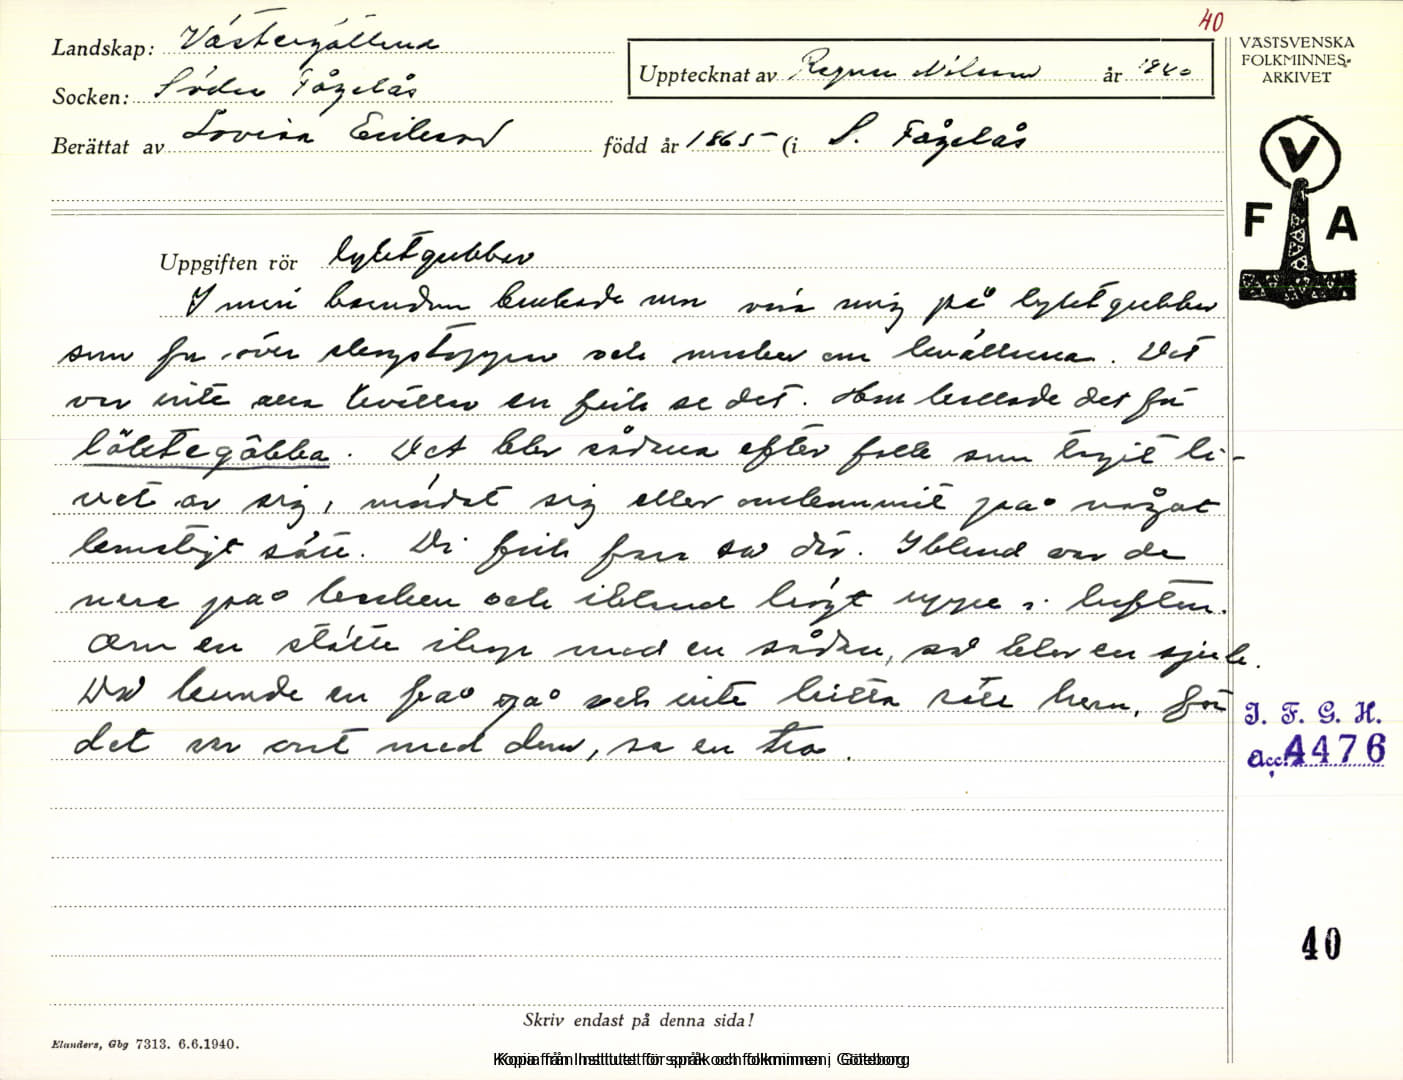 40
Landskap: Västergötland
Socken: Södra Fågelås
Berättat av Lovisa Erikson
Upptecknat av Ragnar Nilsson år 1940
född år 1865 (i S. Fågelås
VÄSTSVENSKA
FOLKMINNES-
ARKIVET
V
F A
Uppgiften rör lyktgubbar
I min barndom brukade mor visa mig på lyktgubbar
som for över skogstoppen och mossen om kvällarna. Det
var inte alla kvällar en fick se det. Hon kallade det för
löktegöbba. Det blev sådana efter folk som tagit li-
vet av sig, mördat sig eller omkommit på något
konstigt sätt. Di fick fara så där. Ibland var de
nere på backen och ibland högt uppe i luften.
Om en stötte ihop med en sådan, så blev en sjuk.
Då kunde en gå på och inte hitta rätt hem, för
det var ont med dem, sa en tro.
I. F. G. H.
Acc. 4476
40
Skriv endast på denna sida!
Elanders, Gbg 7313. 6.6.1940.
Kopia från Institutet för språk och folkminnen i Göteborg